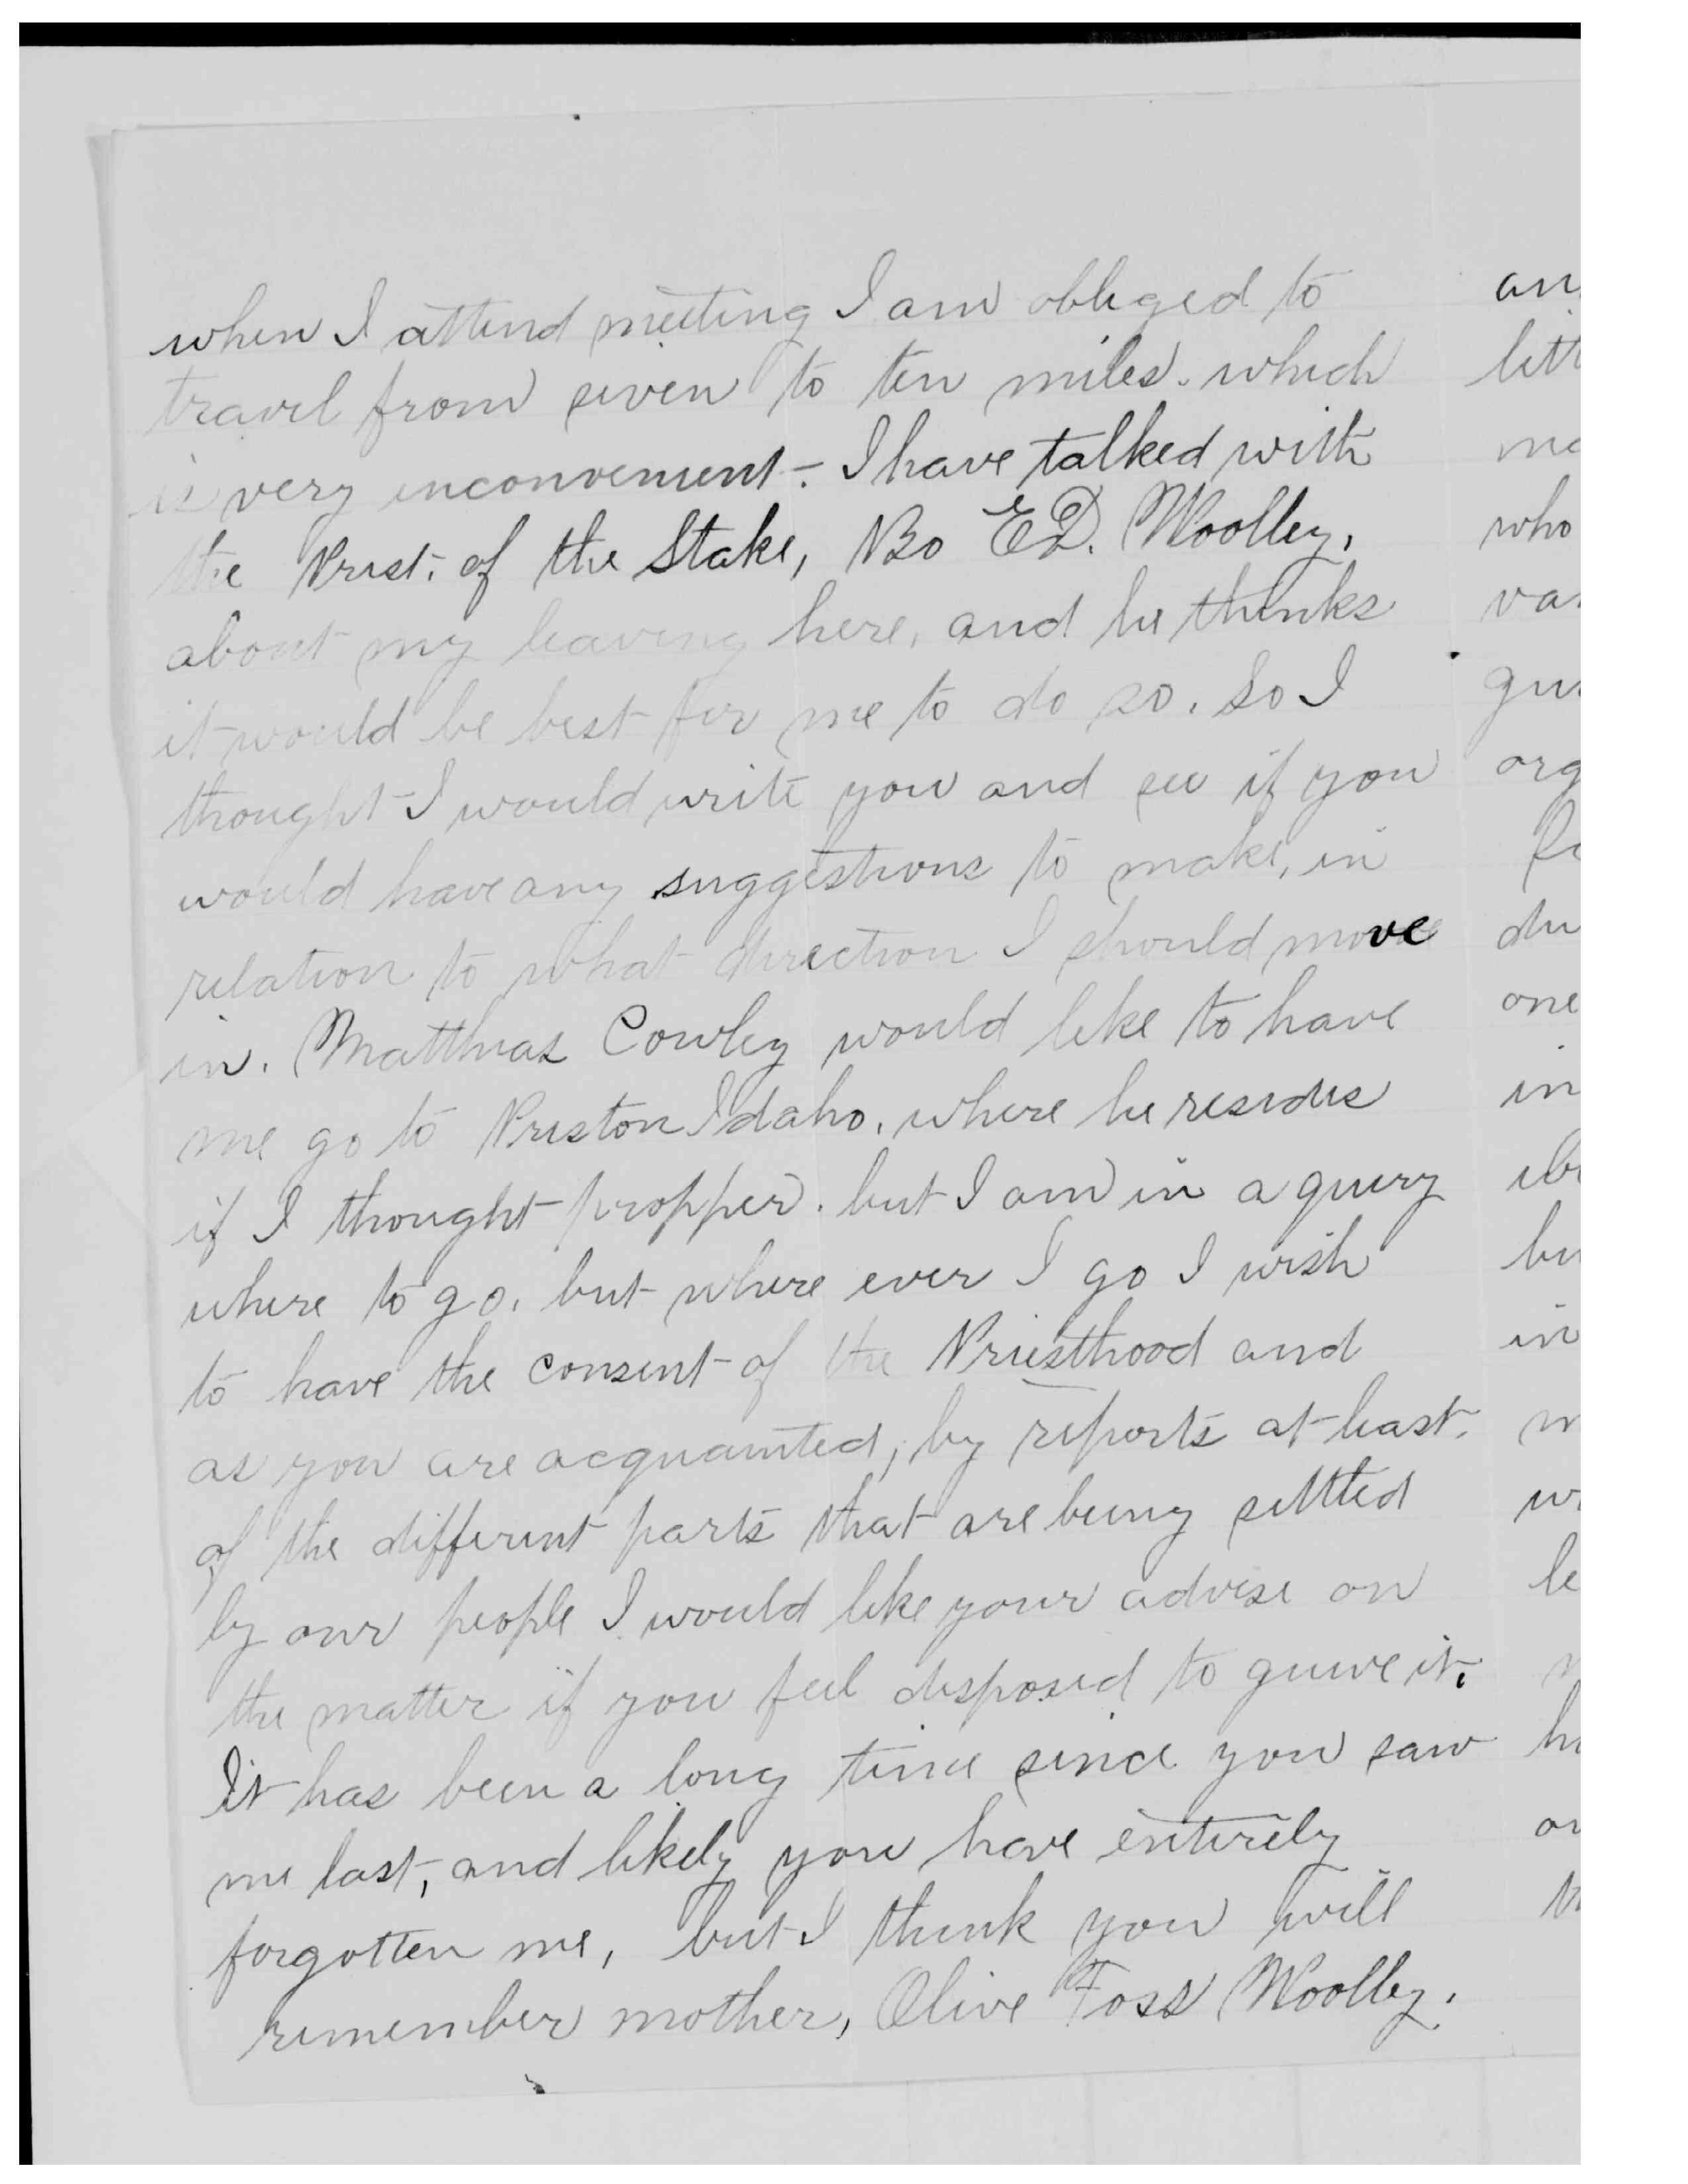 when I attend meeting I am obliged to
travel from seven to ten miles. which
is very inconvenient. I have talked with
the Prest. of the Stake, Bo E.D. Woolley,
about my leaving here, and he thinks
it would be best for me to do so. So I
thought I would write you and see if you
would have any suggestions to make, in
relation to what direction I should move
in. Matthias Cowley would like to have
me go to Preston Idaho, where he resides
if I thought propper. but I am in a query
where to go. but where ever I go I wish
to have the consent of the Priesthood and
as you are acquainted, by reports at least.
of the different parts that are being settled
by our people I would like your advise on
the matter if you feel disposed to guive it.
It has been a long time since you saw
me last, and likely you have entirely
forgotten me, but I think you will
remember mother, Olive Foss Woolley.
an
litt
ma
who
va
org
one
in
bu
in
le